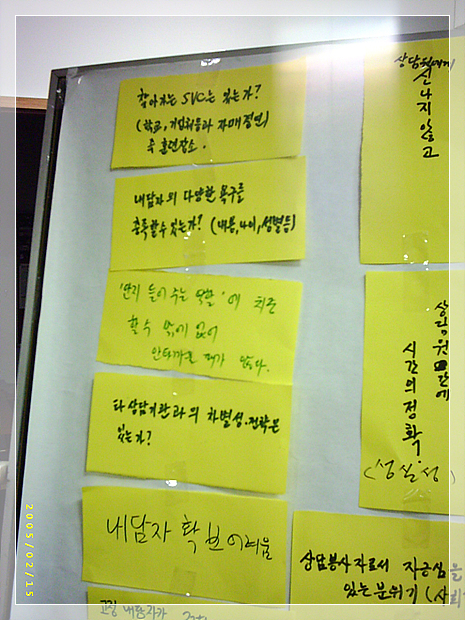 찾아가는 SVC은 있는가?
(학교, 기업체등과 자매결연)
즉 훈련장소.
내담자의 다양한 욕구를
충족할수 있는가? (내용, 나이, 성별등)
'단지 들어 주는 역할' 에 치중
할수 밖에 없어
안타까운 때가 많다.
타 상담기관과의 차별성·전략은
있는가?
내담자 확보어려움
고정 내담자가
상담원에게
신나지 않고
상담원간에
시간의 정확.
(성실성)
상담봉사자로서 자긍심을
있는 분위기 (사
2005/02/15